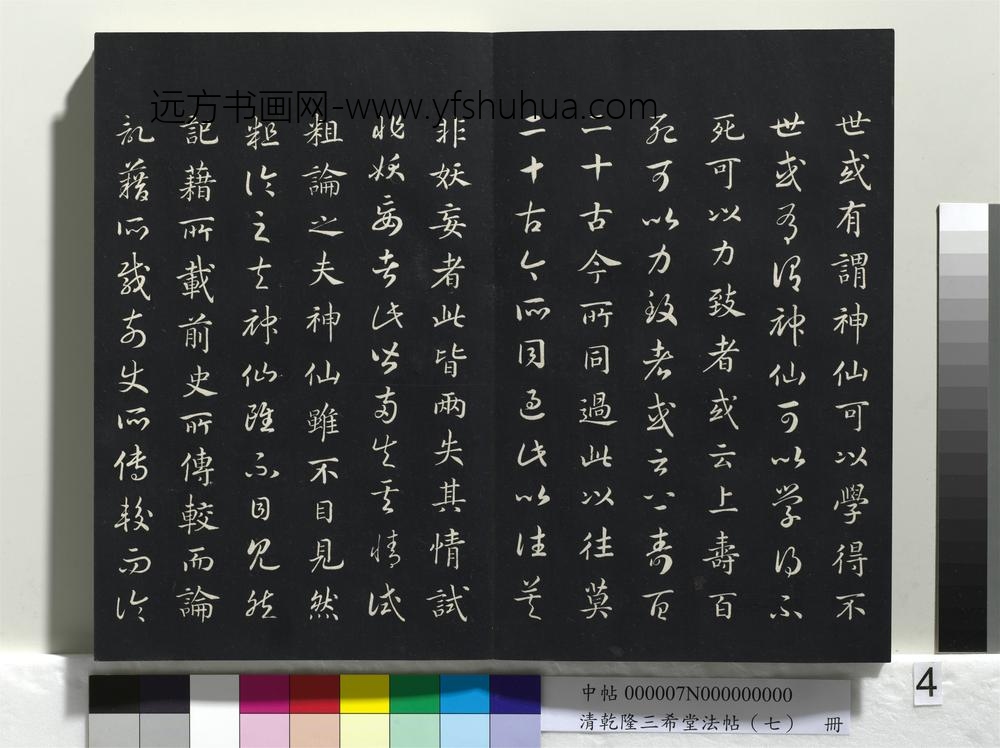 远方书画网-www.yfshuhua.com
世或有謂神仙可以學得不
世或有謂神仙可以学得不
死可以力致者或云上壽百
死可以力致者或云上壽百
二十古今所同過此以往莫
二十古今所同過此以往莫
非妖妄者此皆兩失其情試
非妖妄者此皆兩失其情試
粗論之夫神仙雖不目見然
粗論之夫神仙雖不目見然
記藉所載前史所傳較而論
記藉所載前史所傳較而論
4
中帖 000007N000000000
清乾隆三希堂法帖（七） 冊